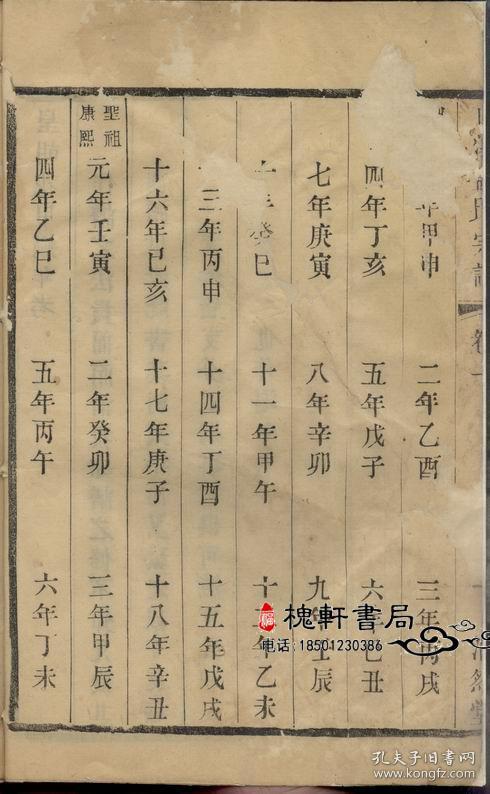 氏宗譜
卷一
年甲申 二年乙酉 三年丙戌
四年丁亥 五年戊子 六年己丑
七年庚寅 八年辛卯 九年壬辰
年癸巳 十一年甲午 十二年乙未
三年丙申 十四年丁酉 十五年戊戌
十六年己亥 十七年庚子 十八年辛丑
聖祖
康熙
元年壬寅 二年癸卯 三年甲辰
四年乙巳 五年丙午 六年丁未
槐軒書局
电话:18501230386
孔夫子旧书网
www.kongfz.com